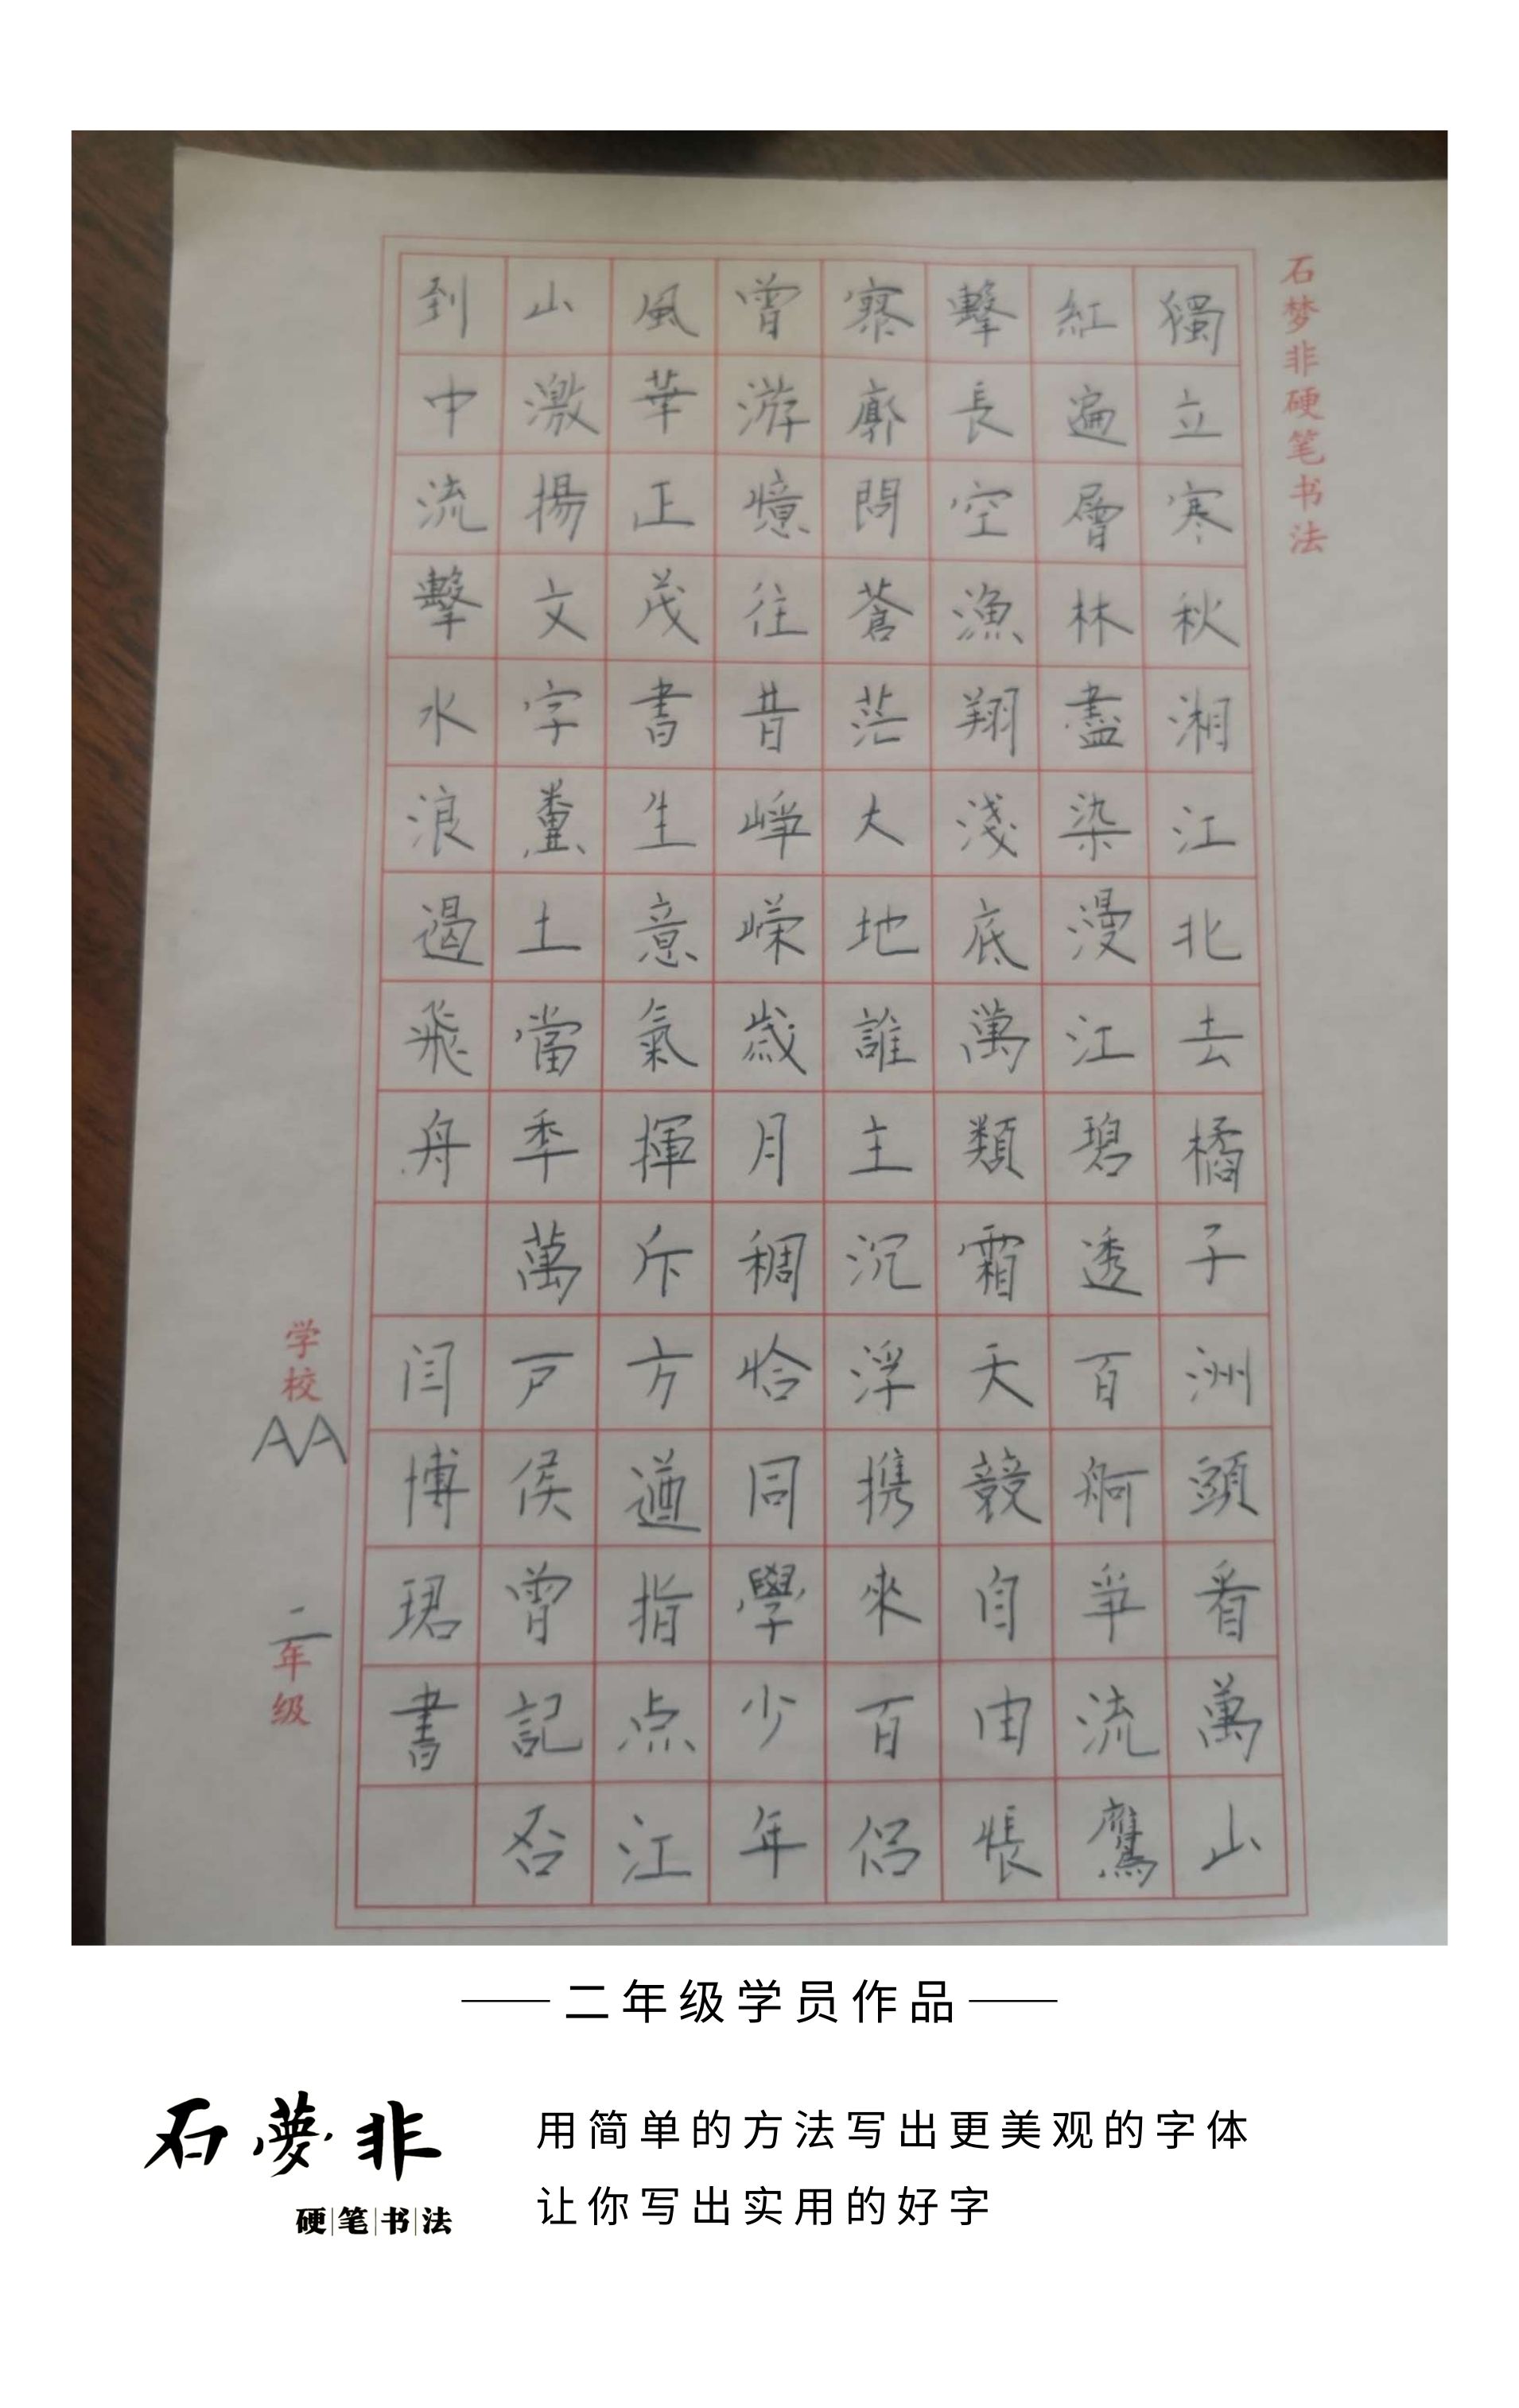 石梦非硬笔书法
獨立寒秋湘江北去橘子洲頭看萬山
紅遍層林盡染漫江碧透百舸爭流鷹
擊長空漁翔淺底萬類霜天競自由悵
寥廓問蒼茫大地誰主沉浮携來百侣
曾游憶往昔崢嶸歲月稠恰同學少年
風華正茂書生意氣揮斥方遒指点江
山激揚文字糞土當年萬戸侯曾記否
到中流擊水浪遏飛舟 闫博珺書
学校AA
二年级
二年级学员作品
石夢非
硬笔书法
用简单的方法写出更美观的字体
让你写出实用的好字